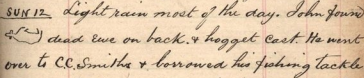 SUN 12 Light rain most of the day. John found
dead ewe on back. & hogget cast. He went
over to C.C. Smiths & borrowed his fishing tackle